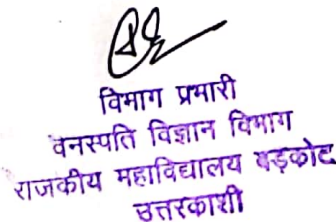 विभाग प्रभारी
वनस्पति विज्ञान विभाग
राजकीय महाविद्यालय बड़कोट
उत्तरकाशी